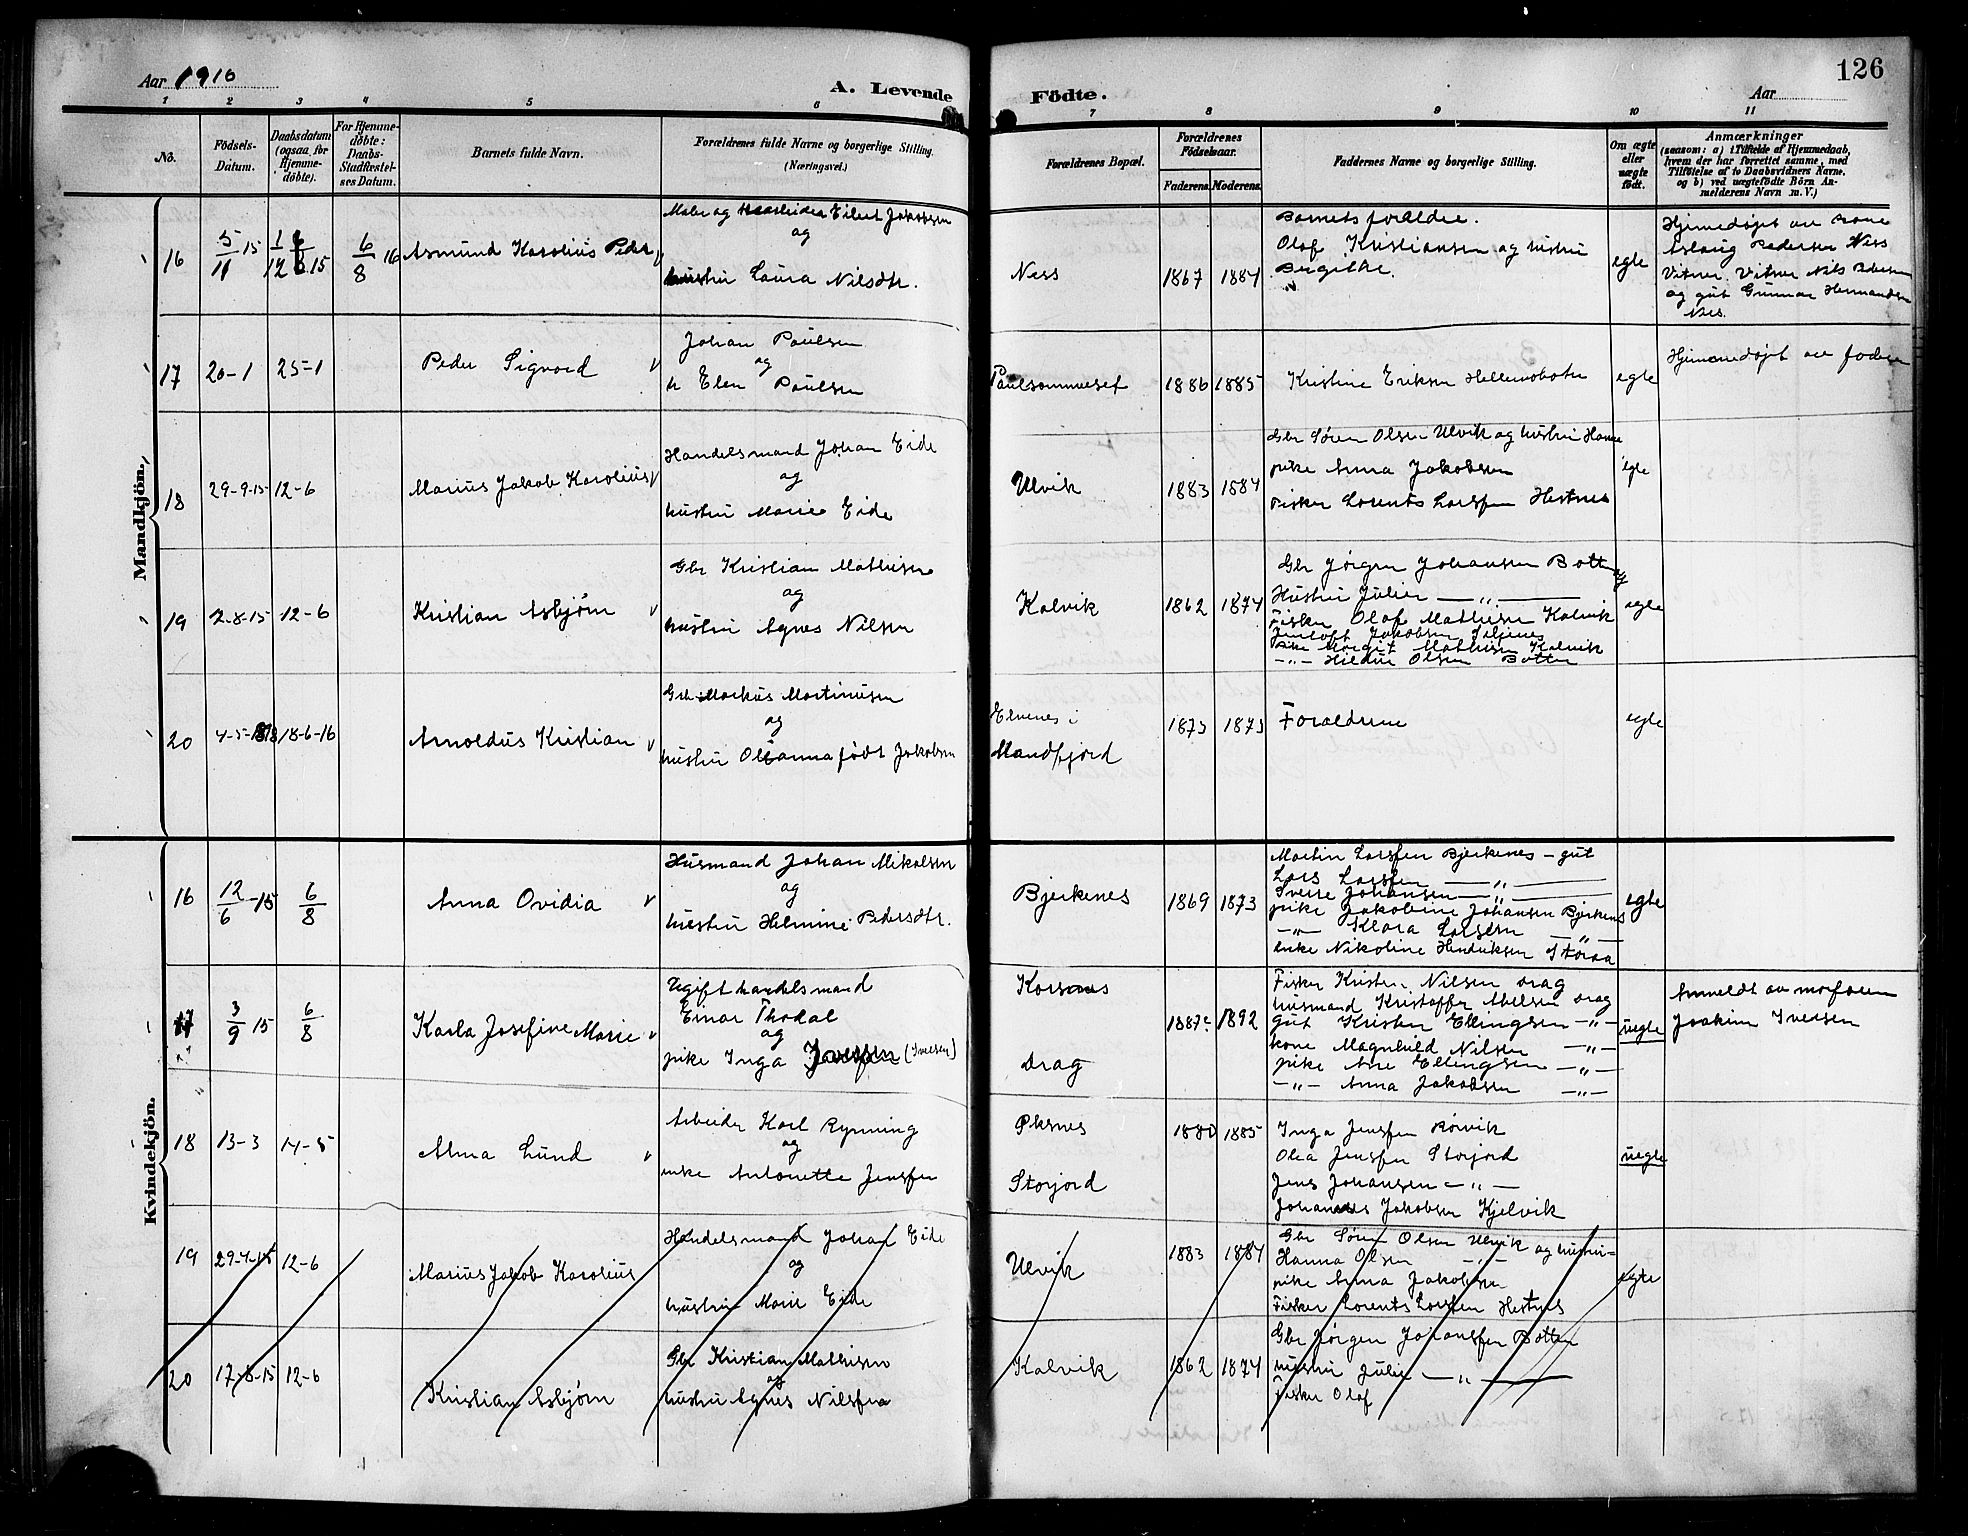 Aar 1916
A. Levende
Födte.
Aar
126
1 2 3 4 5 6 7 8 9 10 11
No.
Födsels-
Datum.
Daabsdatum
(ogsaa for
Hjemme-
döbte).
For Hjemme-
döbte:
Daabs-
Stadfæstel-
ses Datum.
Barnets fulde Navn.
Forældrenes fulde Navne og borgerlige Stilling.
(Næringsvei.)
Forældrenes Bopæl.
Forældrenes
Födselsaar.
Faderens. Moderens.
Faddernes Navne og borgerlige Stilling.
Om ægte
eller
uægte
födt.
Anmærkninger
(saasom: a) i Tilfælde af Hjemmedaab,
hvem der har forrettet samme, med
Tilföielse af to Daabsvidners Navne,
og b) ved uægtefödte Börn An-
melderens Navn m. V.)
Mandkjön.
16
5/11 15
6/8 16
Asmund Karolius Peder
og Eilert Jakobsen
og
hustru Laura Nilsdtr.
Ness
1867 1884
Barnets forældre.
Olaf Kristiansen og hustru
Bergitte.
egte
Hjemmedøpt av kone
Aslaug Pedersen Ness
Vitner Nils Pedersen
og gut Gunnar Hermandsen
Nes.
17
20-1
25-1
Peder Sigvard
Johan Paulsen
og
h Elen Paulsen
Paulsommerset
1886 1885
Kristine Eriksen Hellemobotn
egte
Hjemmedøpt av faderen
18
29-9-15
12-6
Marius Jakob Karolius
Handelsmand Johan Eide
og
hustru Marie Eide
Ulvik
1883 1884
Gbr Søren Olsen Ulvik og hustru Hanna
pike Anna Jakobsen
Fisker Lorents Larssen Hestnes
egte
19
2-8-15
12-6
Kristian Asbjørn
Gbr Kristian Mathisen
og
hustru Agnes Nilsen
Kalvik
1862 1874
Gbr Jørgen Johansen Botten og
Hustru Julie — „ —
Fisker Olaf Mathisen Kalvik
Jentoft Jakobsen
Pike Margit Mathisen Kalvik
— „ — Hildur Olsen Botten
egte
20
18-6-16
Arnoldus Kristian
Gbr Markus Martinusen
og
hustru Olianna født Jakobsen
Elvenes i
Mandfjord
1873 1873
Foraldrene
egte
Kvindekjön.
16
12/6-15
6/8
Anna Ovidia
Husmand Johan Mikalsen
og
hustru Helmine Pedersdtr.
Bjerkenes
1869 1873
Martin Larssen Bjerkenes - gut
Lars Larssen — „ —
Sverre Johansen — „ —
pike Jakobine Johansen Bjerkenes
— „ — Klara Larsen — „ —
enke Nikoline Hendriksen Støraa
egte
17
3/9 15
6/8
Karla Josefine Marie
Ugift handelsmand
Einar Thodal
og
pike Inga (Iversen)
Korsnes
Drag
1887 1892
Fisker Kristen Nilsen Drag
husmand Kristoffer Abelsen Drag
gut Kristen Ellingsen — „ —
kone Magnhild Nilsen — „ —
pike Ane Ellingsen — „ —
— „ — Anna Jakobsen — „ —
uegte
Anmeldt av morfaren
Joakim Iversen
18
13-3
14-5
Alma Lund
Arbeider Karl Rynning
og
enke Antonette Jenssen
Øksnes
Storjord
1880 1885
Inga Jenssen Rørvik
Olea Jenssen Storjord
Jens Johansen — „ —
Johannes Jakobsen Kjelvik
uegte
19
12-6
Marius Jakob Karolius
Handelsmand Johan Eide
og
hustru Marie Eide
Ulvik
1883 1884
Gbr Søren Olsen Ulvik og hustru
Hanna Olsen — „ —
pike Anna Jakobsen
Fisker Lorents Larssen Hestnes
egte
20
17-8-15
12-6
Kristian Asbjørn
Gbr Kristian Mathisen
og
hustru Agnes Nilssen
Kalvik
1862 1874
Gbr Jørgen Johanssen Botten
hustru Julie — „ —
Fisker Olaf